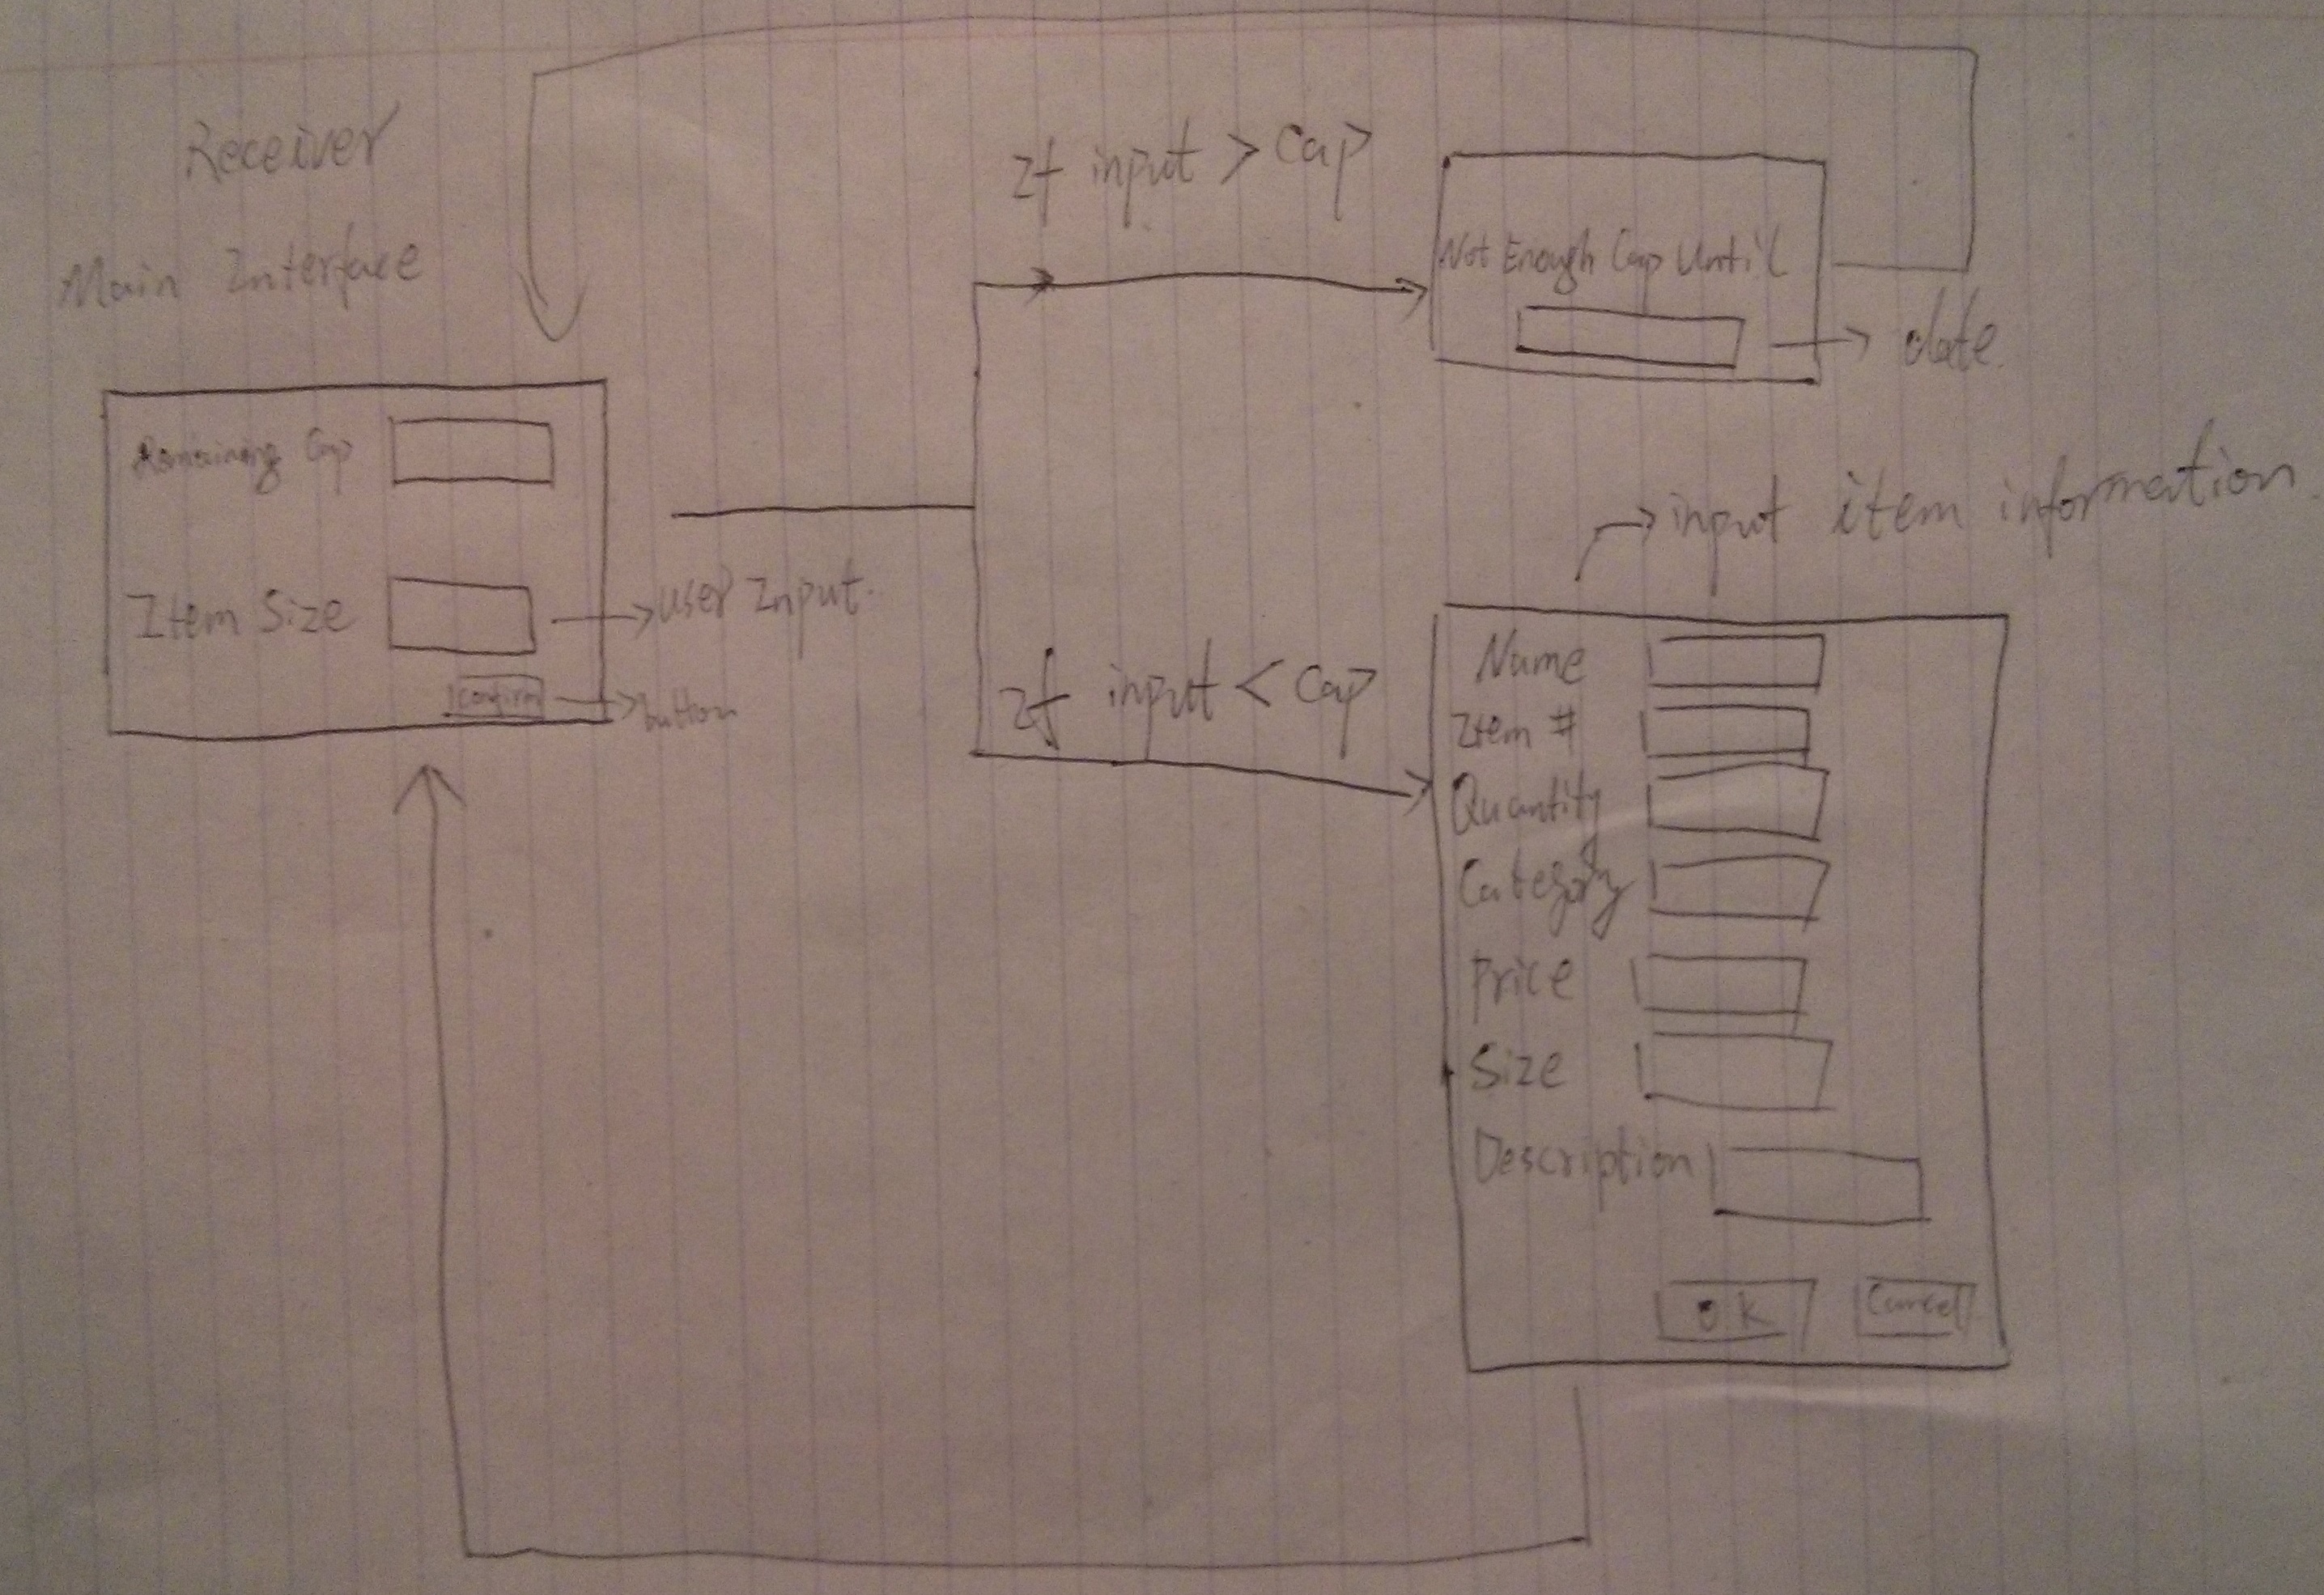 Receiver
Main Interface
Remaining Cap
Item Size
User Input.
Confirm
button
If input > Cap
Not Enough Cap Until
date.
If input < Cap
input item information.
Name
Item #
Quantity
Category
Price
Size
Description
OK
Cancel